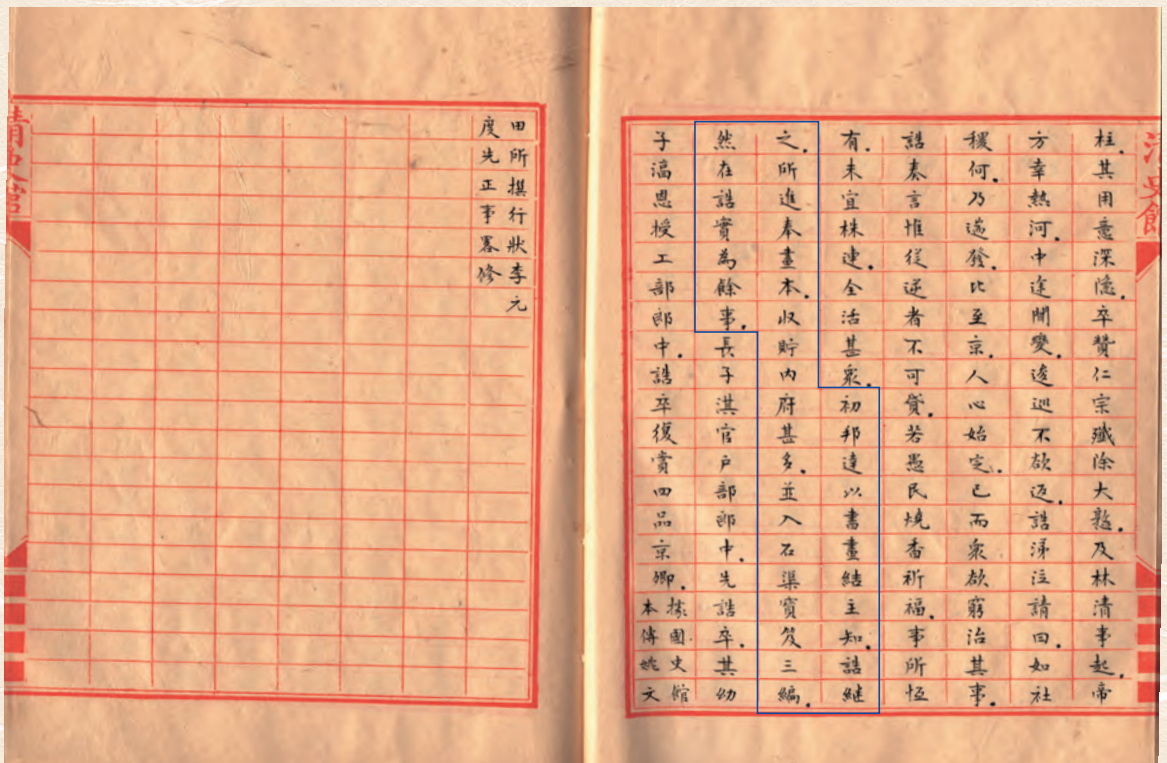 清史館
柱．其用意深隱．卒贊仁宗殲除大憝．及林清事起．帝
方幸熱河．中途聞變．逡巡不欲返．誥涕泣請回．如社
稷何．乃遄發．比至京．人心始定．已而衆欲窮治其事．
誥奏言惟從逆者不可貸．若愚民燒香祈福．事所恆
有．未宜株連．全活甚衆．初邦達以書畫結主知．誥継
之．所進奉畫本．收貯內府甚多．並入石渠寶笈三編．
然在誥實為餘事．長子淇官戶部郎中．先誥卒．其幼
子滆恩授工部郎中．誥卒復賞四品京卿．
據國史館
本傳姚文
田所撰行狀李元
度先正事畧修
清史館